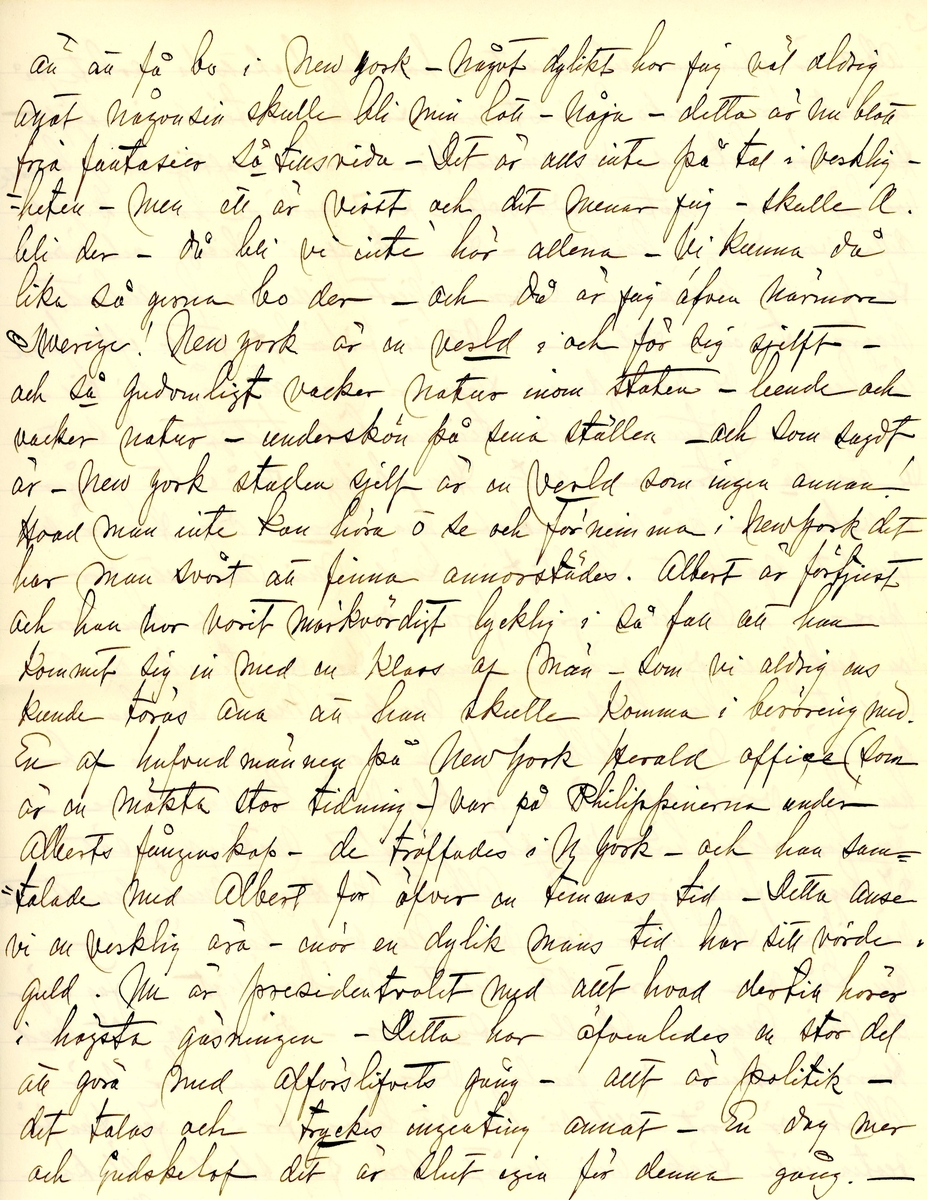 än att få bo i New York – något dylikt har jag väl aldrig
anat någonsin skulle bli min lott – nåja – detta är nu blott
fria fantasier så tillsvida – Det är alls inte på tal i verklig-
=heten – men ett är visst och det menar jag – skulle A.
bli der – då bli vi inte här allena – Vi kunna då
lika så gerna bo der – och då är jag äfven närmare
Sverige! New York är en verld i och för sig sjelft –
och så gudomligt vacker natur inom staten – leende och
vacker natur – underskön på sina ställen – och som sagdt
är – New York staden sjelf är en verld som ingen annan!
Hvad man inte kan höra o se och förnimma i New York det
har man svårt att finna annorstädes. Albert är förtjust
och han har varit märkvärdigt lycklig i så fall att han
kommit sig in med en klass af män – som vi aldrig ens
kunde töras ana att han skulle komma i beröring med.
En af hufvudmännen på New York Herald office (som
är en mäkta stor tidning –) var på Philippinerna under
Alberts fångenskap – de träffades i N York – och han sam=
"talade med Albert för öfver en timmas tid – Detta anse
vi en verklig ära – enär en dylik mans tid har sitt värde i
guld. Nu är presidentvalet med allt hvad dertill hörer
i högsta gäsningen – Detta har äfvenledes en stor del
att göra med affärslifvets gång – allt är politik –
det talas och tryckes ingenting annat – En dag mer
och Gudskelof det är slut igen för denna gång. —